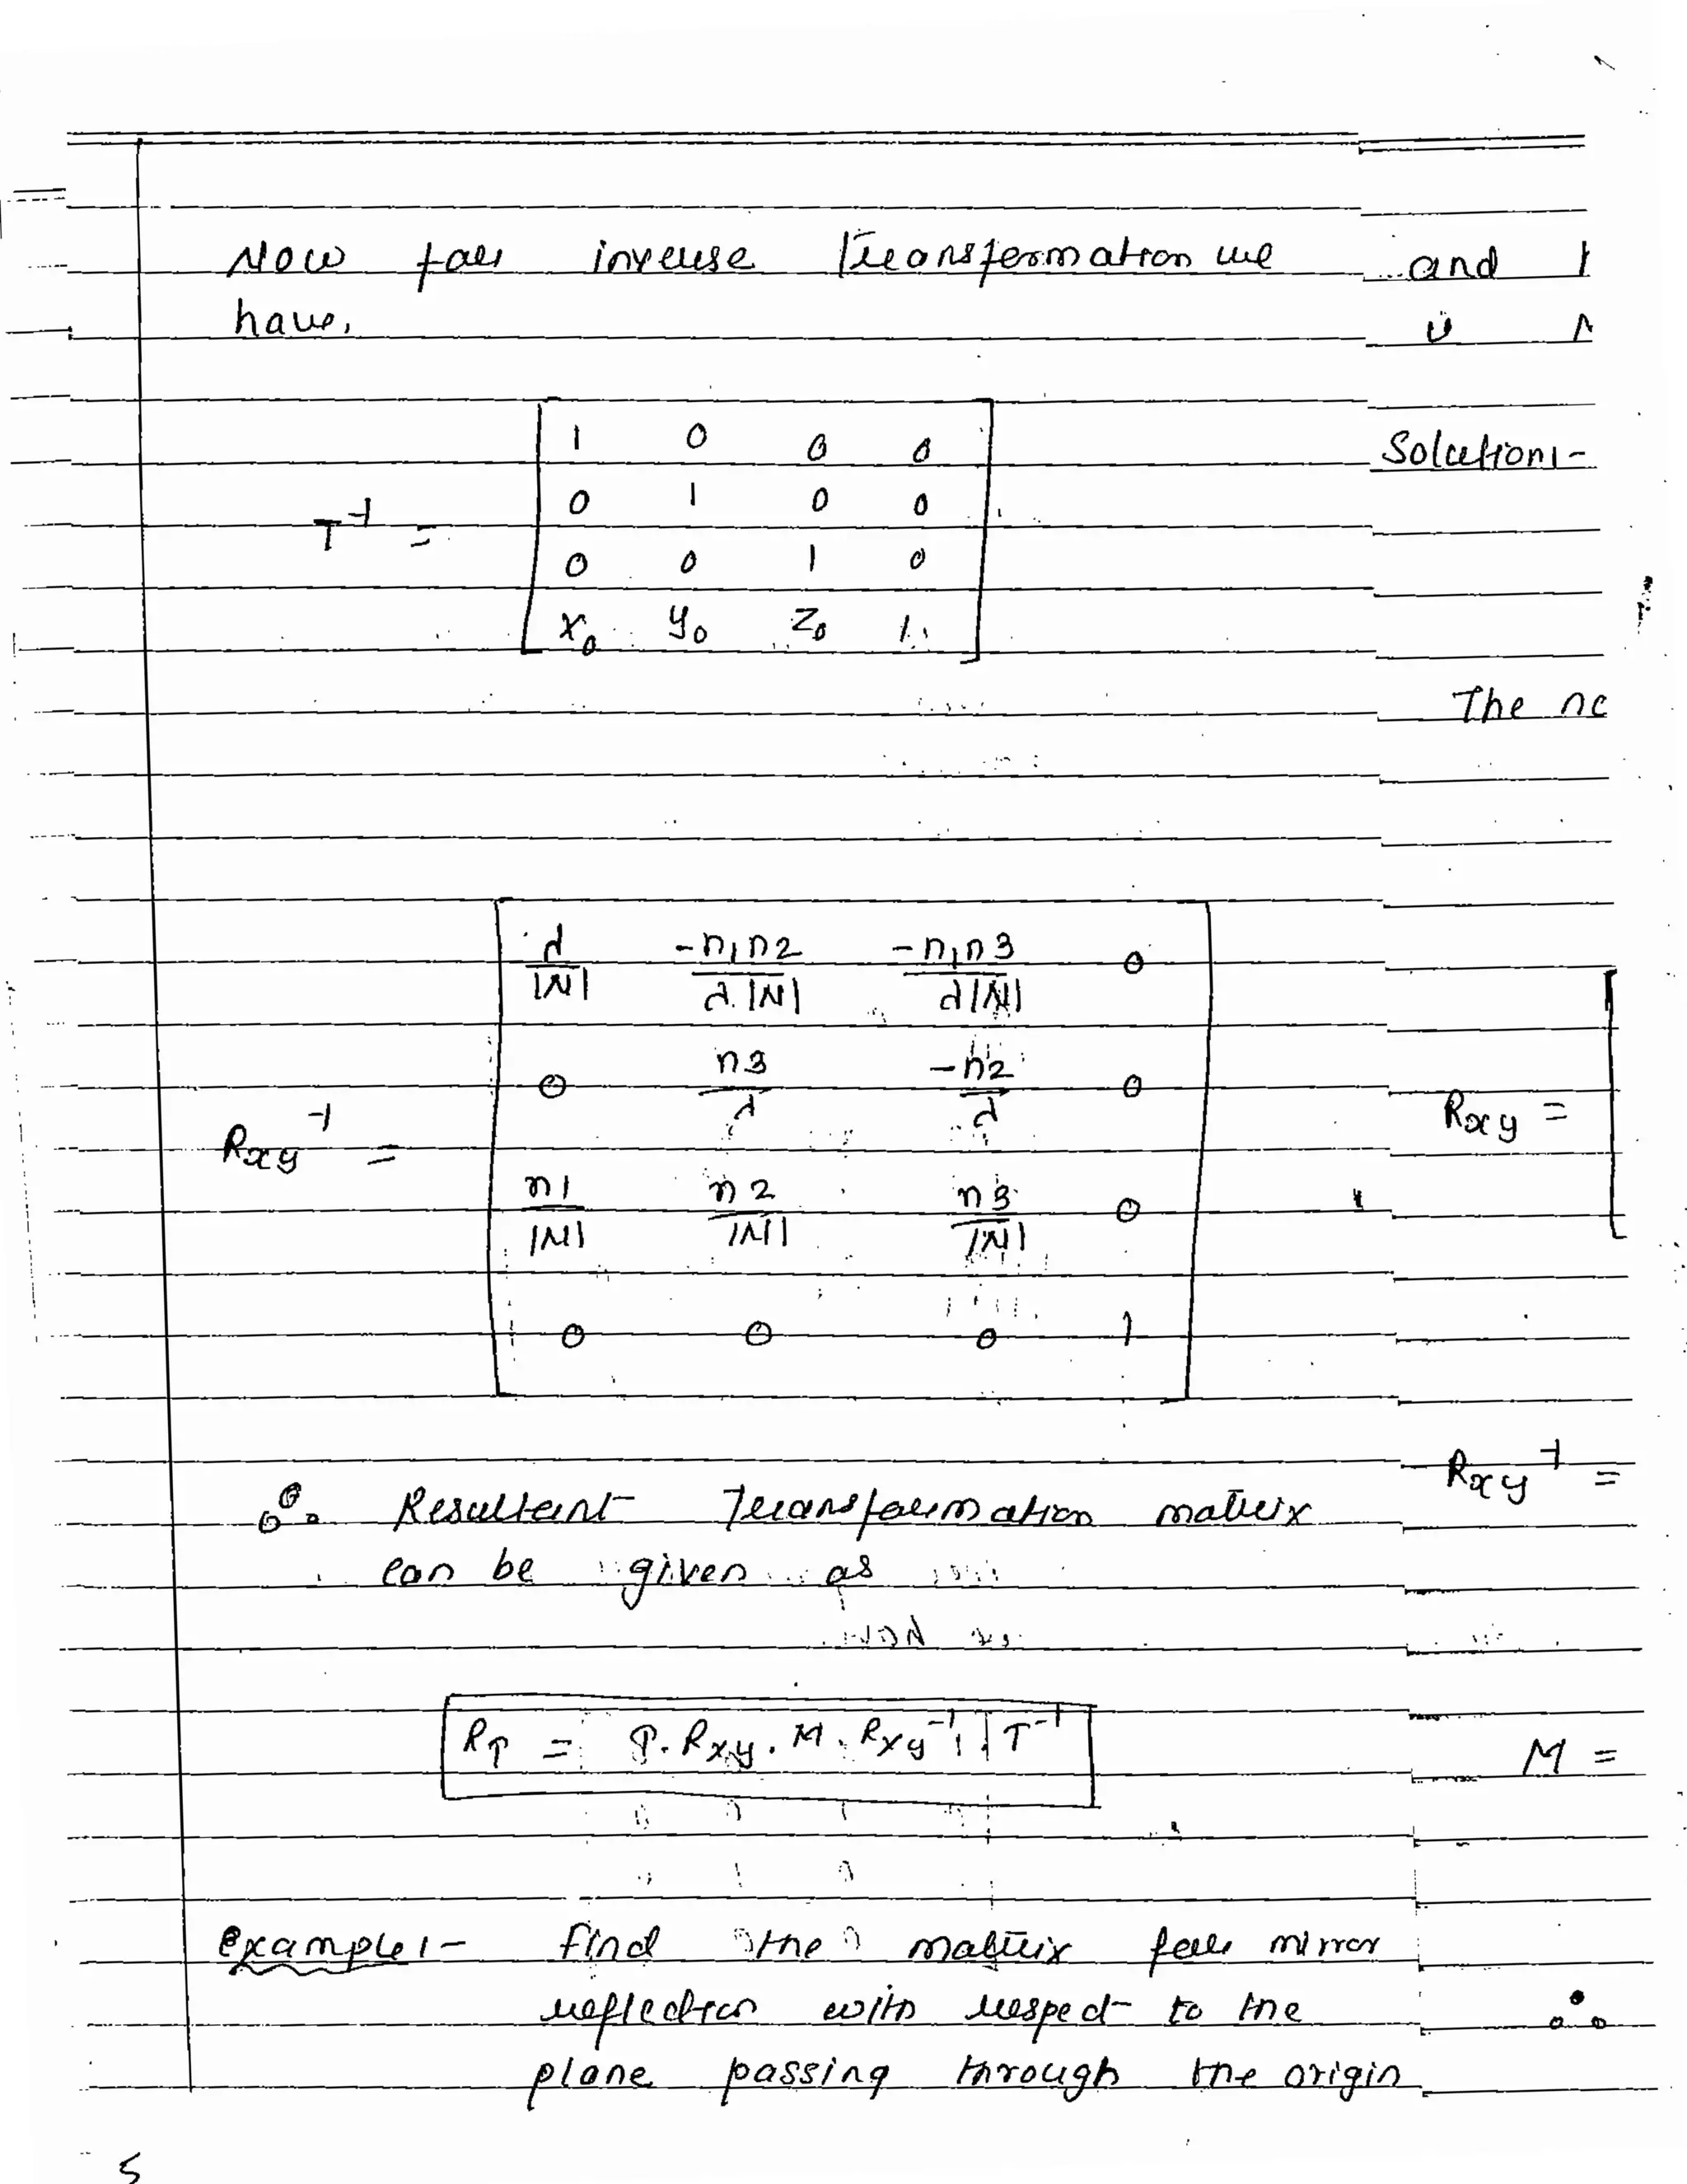 Now for inverse Transformation we
have,
T⁻¹ =
1 0 0 0
0 1 0 0
0 0 1 0
x₀ y₀ z₀ 1
Rxy⁻¹ =
λ/|N| -n1n2/λ.|N| -n1n3/λ|N| 0
0 n3/λ -n2/λ 0
n1/|N| n2/|N| n3/|N| 0
0 0 0 1
∴ Resultant Transformation matrix
can be given as
R_T = T.Rxy.M.Rxy⁻¹.T⁻¹
Example:- find the matrix for mirror
reflection with respect to the
plane passing through the origin
5
and
Solution:-
The
Rxy =
Rxy⁻¹ =
M =
∴